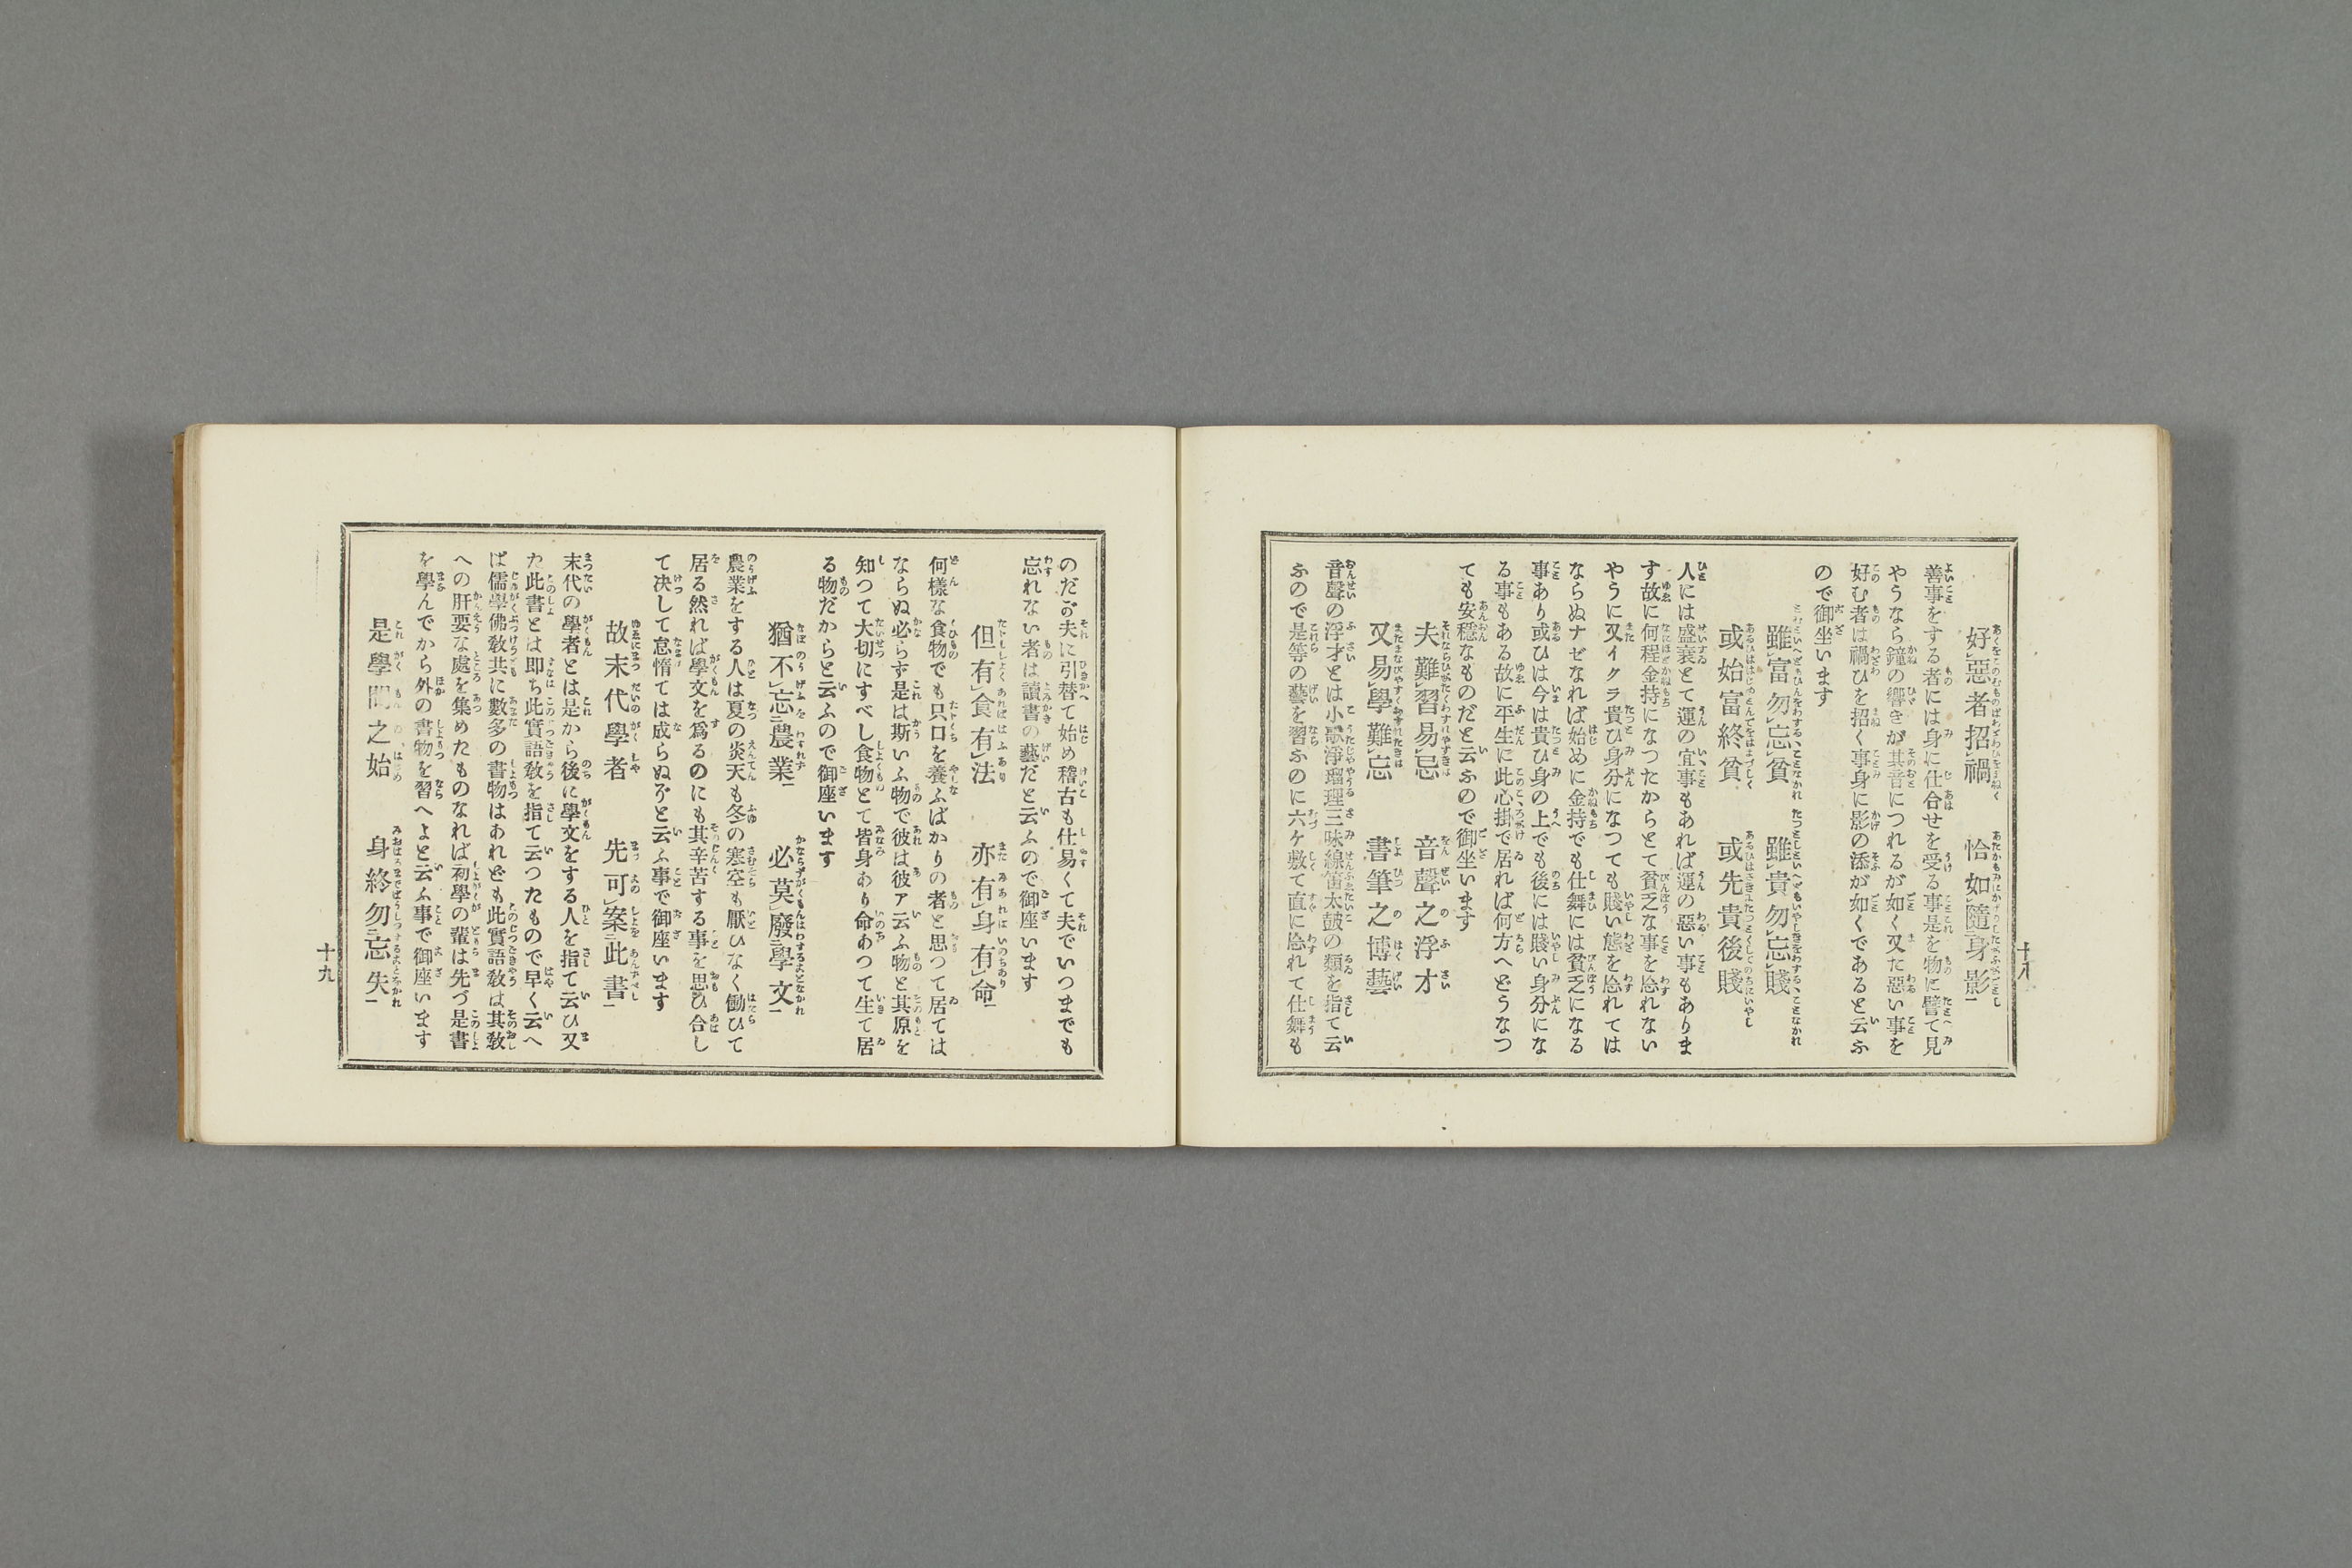 好惡者招禍　恰如隨身影
善事をする者には身に仕合せを受る事是を物に譬て見
やうなら鐘の響きが其音につれるが如く又た惡い事を
好む者は禍ひを招く事身に影の添が如くであると云ふ
ので御坐います
雖富勿忘貧　雖貴勿忘賤
或始富終貧　或先貴後賤
人には盛衰とて運の宜事もあれば運の惡い事もありま
す故に何程金持になつたからとて貧乏な事を忘れない
やうに又イクラ貴ひ身分になつても賤い態を忘れては
ならぬナゼなれば始めに金持でも仕舞には貧乏になる
事あり或ひは今は貴ひ身の上でも後には賤い身分にな
る事もある故に平生に此心掛で居れば何方へどうなつ
ても安穩なものだと云ふので御坐います
夫難習易忘　音聲之浮才
又易學難忘　書筆之博藝
音聲の浮才とは小歌淨瑠理三味線笛太鼓の類を指て云
ふので是等の藝を習ふのに六ケ敷て直に忘れて仕舞も
十八
のだが夫に引替て始め稽古も仕易くて夫でいつまでも
忘れない者は讀書の藝だと云ふので御座います
但有食有法　亦有身有命
何樣な食物でも只口を養ふばかりの者と思つて居ては
ならぬ必らす是は斯いふ物で彼は彼ア云ふ物と其原を
知つて大切にすべし食物とて皆身あり命あつて生て居
る物だからと云ふので御座います
猶不忘農業　必莫廢學文
農業をする人は夏の炎天も冬の寒空も厭ひなく働ひて
居る然れば學文を爲るのにも其辛苦する事を思ひ合し
て决して怠惰ては成らぬぞと云ふ事で御座います
故末代學者　先可案此書
末代の學者とは是から後に學文をする人を指て云ひ又
た此書とは即ち此實語敎を指て云つたもので早く云へ
ば儒學佛敎共に數多の書物はあれども此實語敎は其敎
への肝要な處を集めたものなれば初學の輩は先づ是書
を學んでから外の書物を習へよと云ふ事で御座います
是學問之始　身終勿忘失
十九